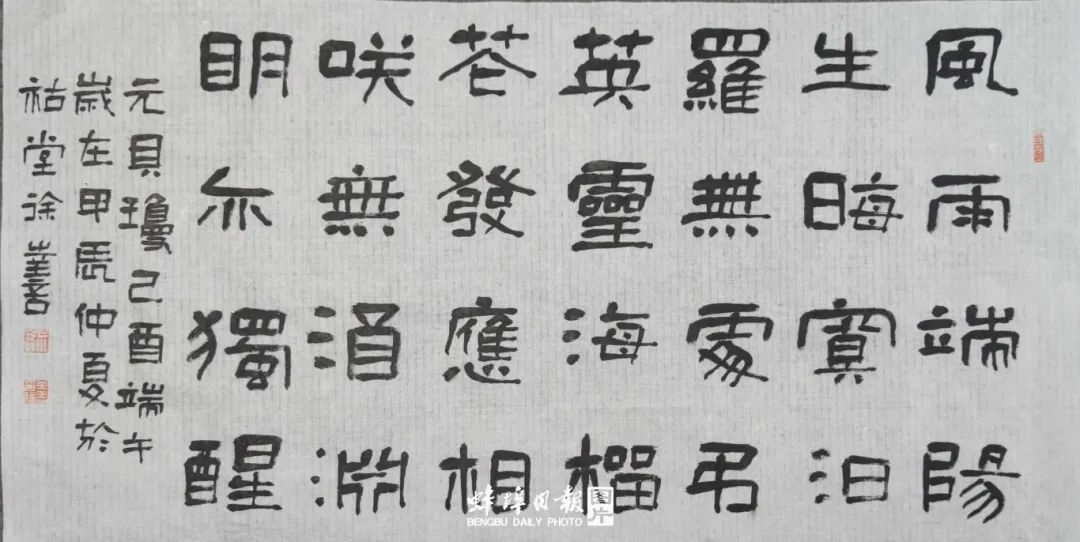 風雨端陽
生晦冥汨
羅無處吊
英靈海榴
花發應相
咲無酒淵
明亦獨醒
元貝瓊己酉端午
歲在甲辰仲夏於
祜堂徐
蚌埠日報 图片
BENGBU DAILY PHOTO